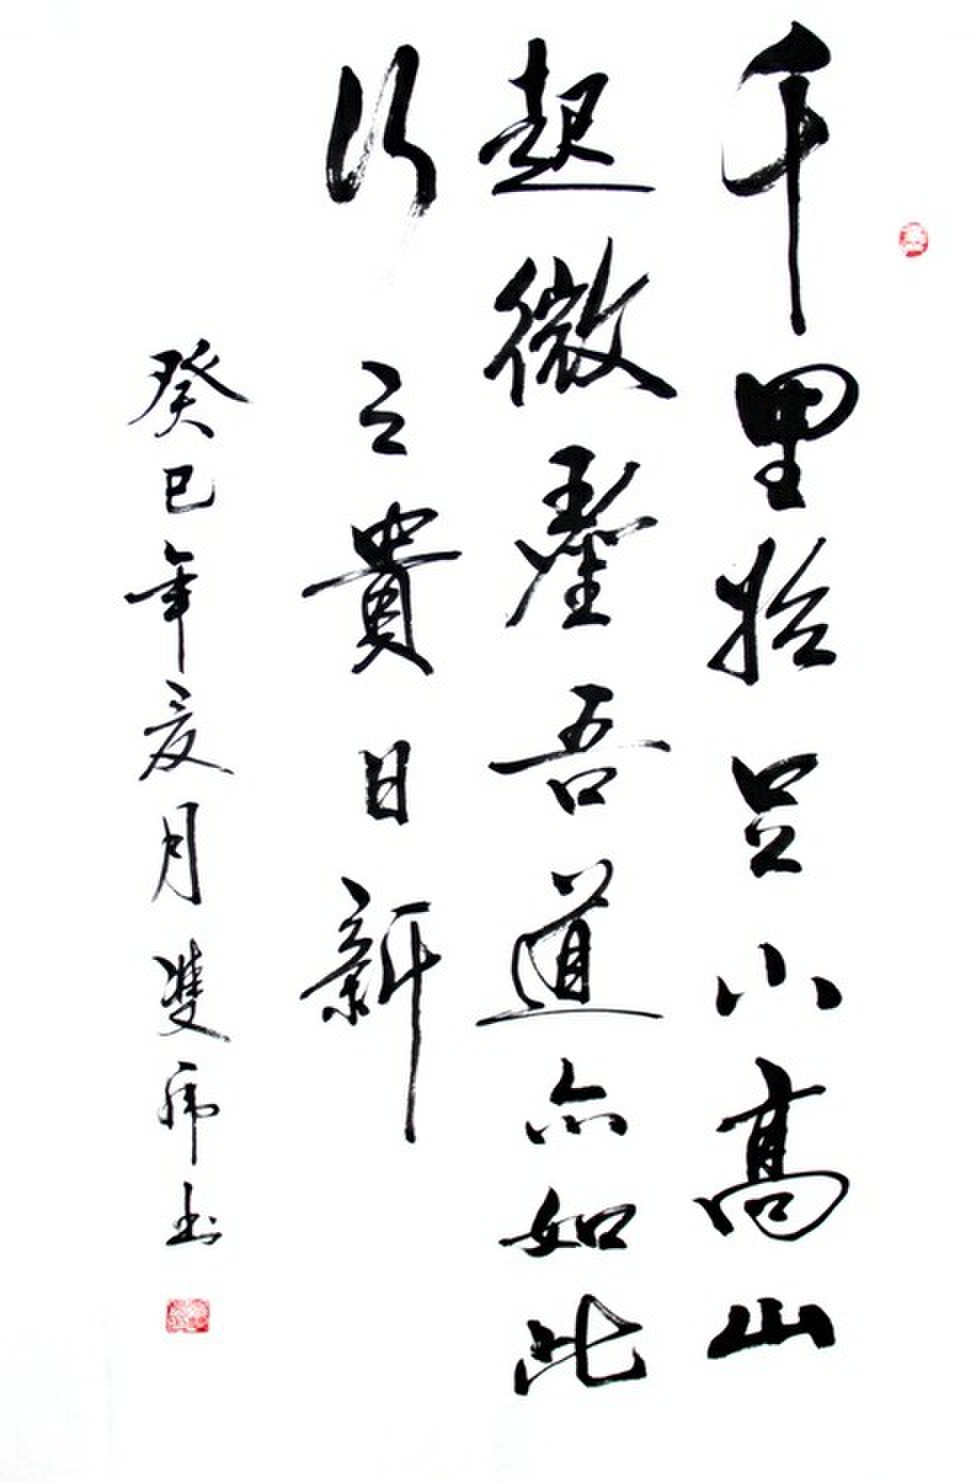 千里始足下高山
起微塵吾道亦如此
行之貴日新
癸巳年夏月雙虎書